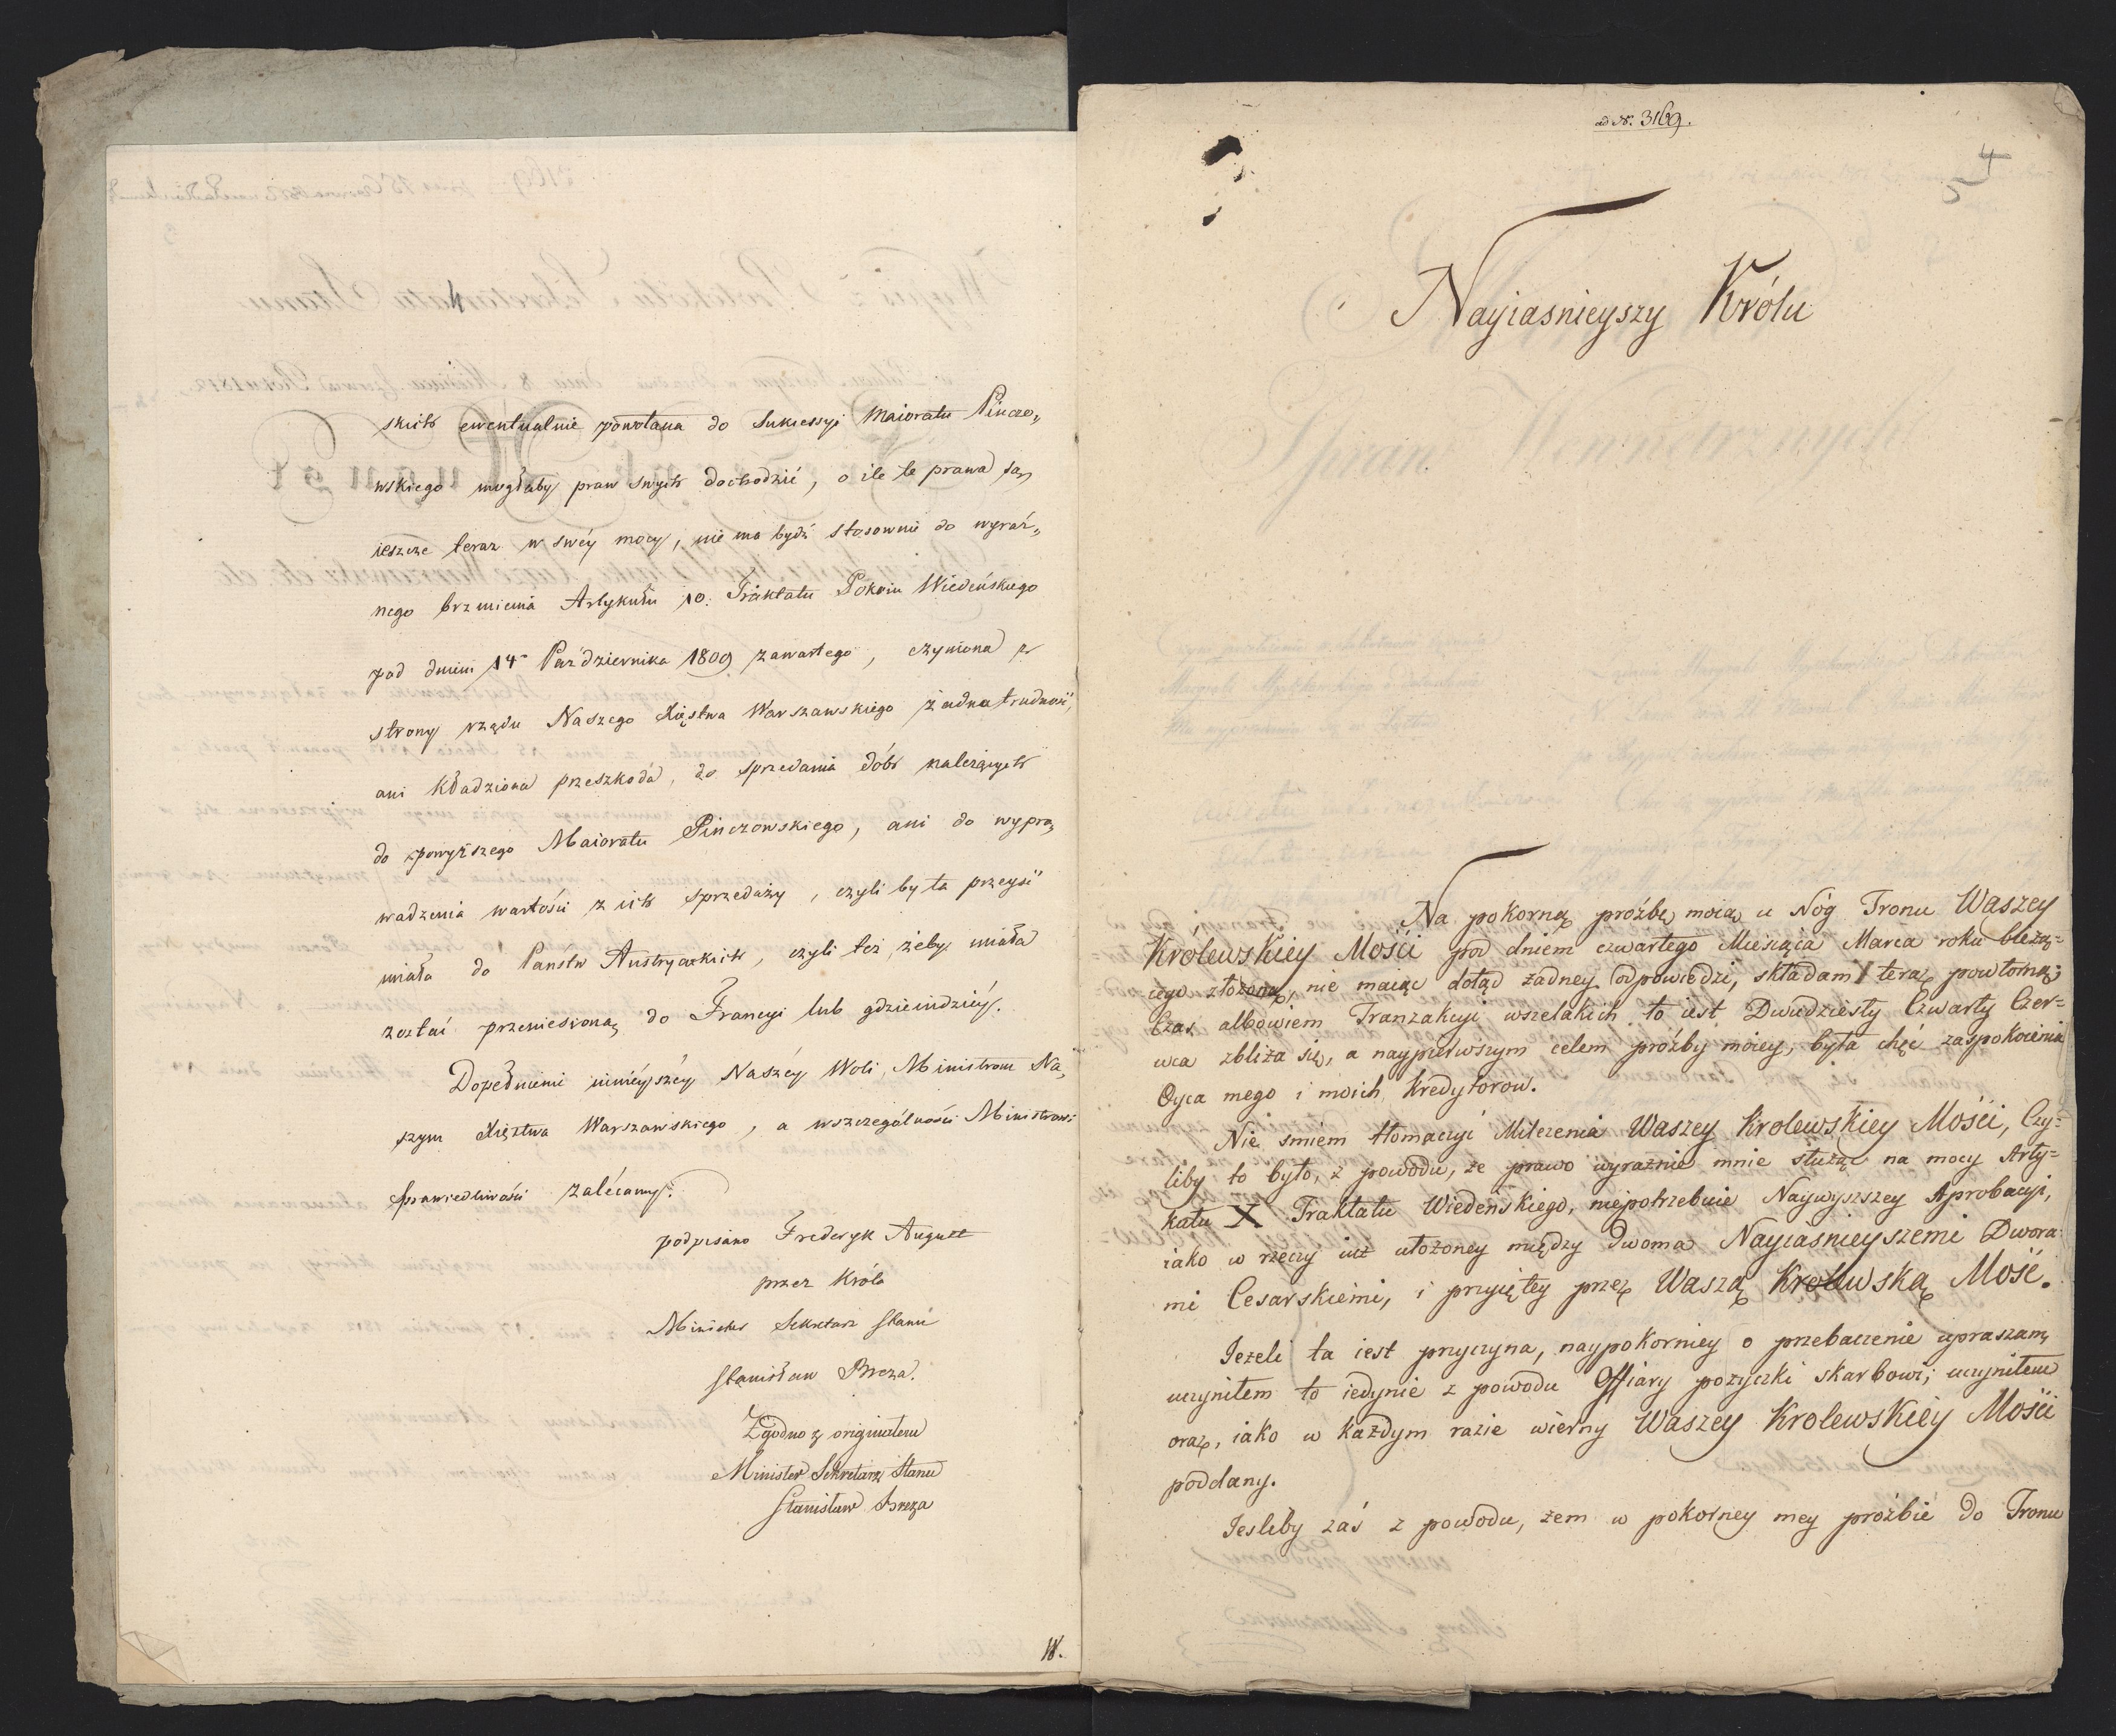 skich ewentualnie powołana do Sukcessyi Maioratu Pinczo„
wskiego mogłaby praw swych dochodzić, o ile te prawa są
ieszcze teraz w swéy mocy, nie ma bydź stosownie do wyraź„
nego brzmienia Artykułu 10. Traktatu Pokoiu Wiedeńskiego
pod dniem 14 Października 1809 zawartego, czyniona z
strony rządu Naszego Xięstwa Warszawskiego żadna trudność,
ani kładziona przeszkoda, do sprzedania dóbr należących
do powyższego Maioratu Pinczowskiego, ani do wypro„
wadzenia wartości z ich sprzedaży, czyli by ta przeyść
miała do Państw Austryackich, czyli też, żeby miała
zostać przeniesioną do Francyi lub gdzieindziéy.
Dopełnieni ninieyszéy Naszéy Woli, Ministrom Na„
szym Xięztwa Warszawskiego, a wszczególności Ministrowi
Sprawiedliwości zalécamy.
podpisano Frederyk August
przez Króla
Minister Sekretarz Stanu
Stanisław Breza.
Zgodno z originałem
Minister Sekretarz Stanu
Stanisław Breza
W.
ad N. 3169.
4
5
Nayiasnieyszy Królu
Na pokorną prózbę moią u Nóg Tronu Waszey
Królewskiey Mości pod dniem czwartego Miesiąca Marca roku bieżą=
cego złożoną, nie maiąc dotąd żadney odpowiedzi, składam teraz powtorną;
Czas albowiem Tranzakcyi wszelakich to iest Dwudziesty Czwarty Czer=
wca zbliża się, a naypierwszym celem próźby moiey, była chęć zaspokoienia
Oyca mego i moich Kredytorow.
Nie smiem tłomaczyć Milczenia Waszey Krolewskiey Mości, Czy=
liby to było, z powodu, że prawo wyraźnie mnie służąc na mocy Arty=
kułu X Traktatu Wiedeńskiego, niepotrzebuie Naywyższey Aprobacyi,
iako w rzeczy iuż ułożoney między dwoma Nayiasnieyszemi Dwora
mi Cesarskiemi, i przyiętey przez Waszą Krolewską Mość.
Ieżeli ta iest przyczyna, naypokorniey o przebaczenie upraszam,
uczyniłem to iedynie z powodu Offiary pożyczki skarbowi; uczyniłem
oraz, iako w każdym razie wierny Waszey Krolewskiey Mości
poddany.
Iesliby zaś z powodu, żem w pokorney mey próżbie do Tronu